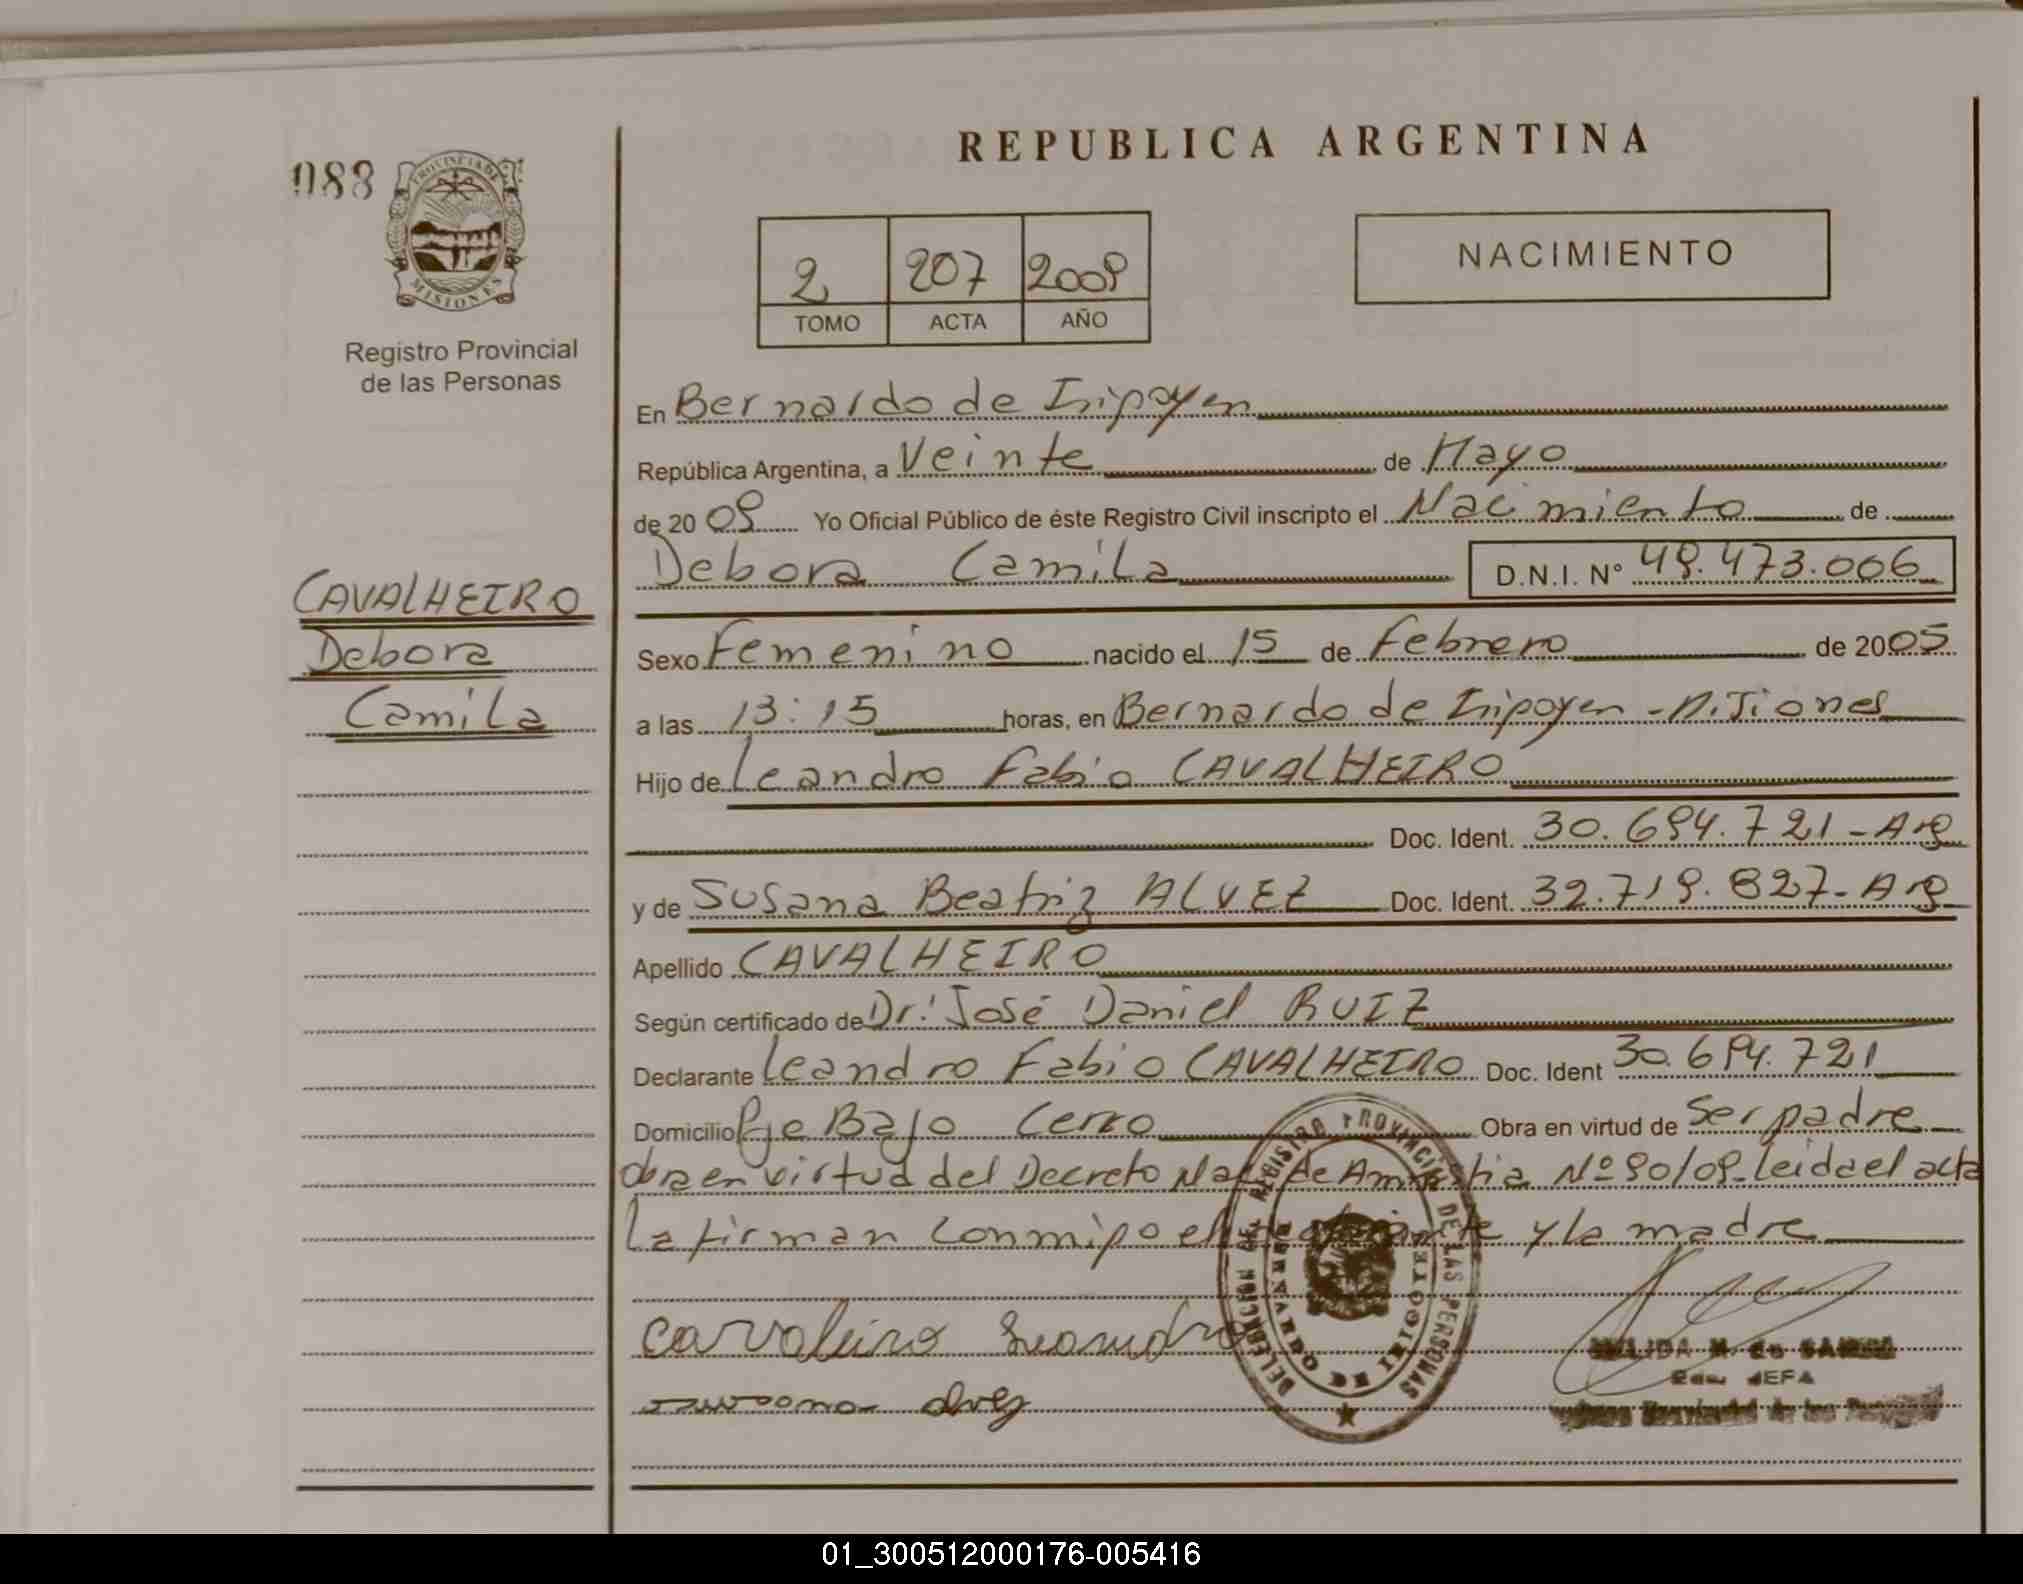 REPUBLICA ARGENTINA
088
PROVINCIA DE
MISIONES
Registro Provincial
de las Personas
2 207 2009
TOMO ACTA AÑO
NACIMIENTO
En Bernardo de Irigoyen
República Argentina, a Veinte de Mayo
de 2009 Yo Oficial Público de éste Registro Civil inscripto el Nacimiento de
Debora Camila D.N.I. N° 49.473.006
CAVALHEIRO
Debora
Camila
Sexo Femenino nacido el 15 de Febrero de 2005
a las 13:15 horas, en Bernardo de Irigoyen - Misiones
Hijo de Leandro Fabio CAVALHEIRO
Doc. Ident. 30.694.721 - Arg
y de Susana Beatriz ALVEZ Doc. Ident. 32.719.827 - Arg
Apellido CAVALHEIRO
Según certificado de Dr. José Daniel RUIZ
Declarante Leandro Fabio CAVALHEIRO Doc. Ident 30.694.721
Domicilio Pje Bajo Cerro Obra en virtud de Ser padre
obra en virtud del Decreto Nac de Amnistia Nº 90/09 - Leida el acta
la firman conmigo el declarante y la madre
Cavaleiro Leandro
Alvez
DELEGACION DE REGISTRO PROVINCIAL DE LAS PERSONAS
BERNARDO DE IRIGOYEN
JEFA
01_300512000176-005416